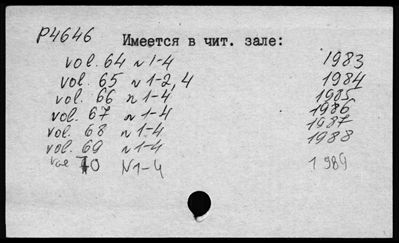 P4646
Имеется в чит. зале:
vol. 64 n 1-4 1983
vol. 65 n 1-2, 4 1984
vol. 66 n 1-4 1985
vol. 67 n 1-4 1986
vol. 68 n 1-4 1987
vol. 69 n 1-4 1988
vol 70 N1-4 1989